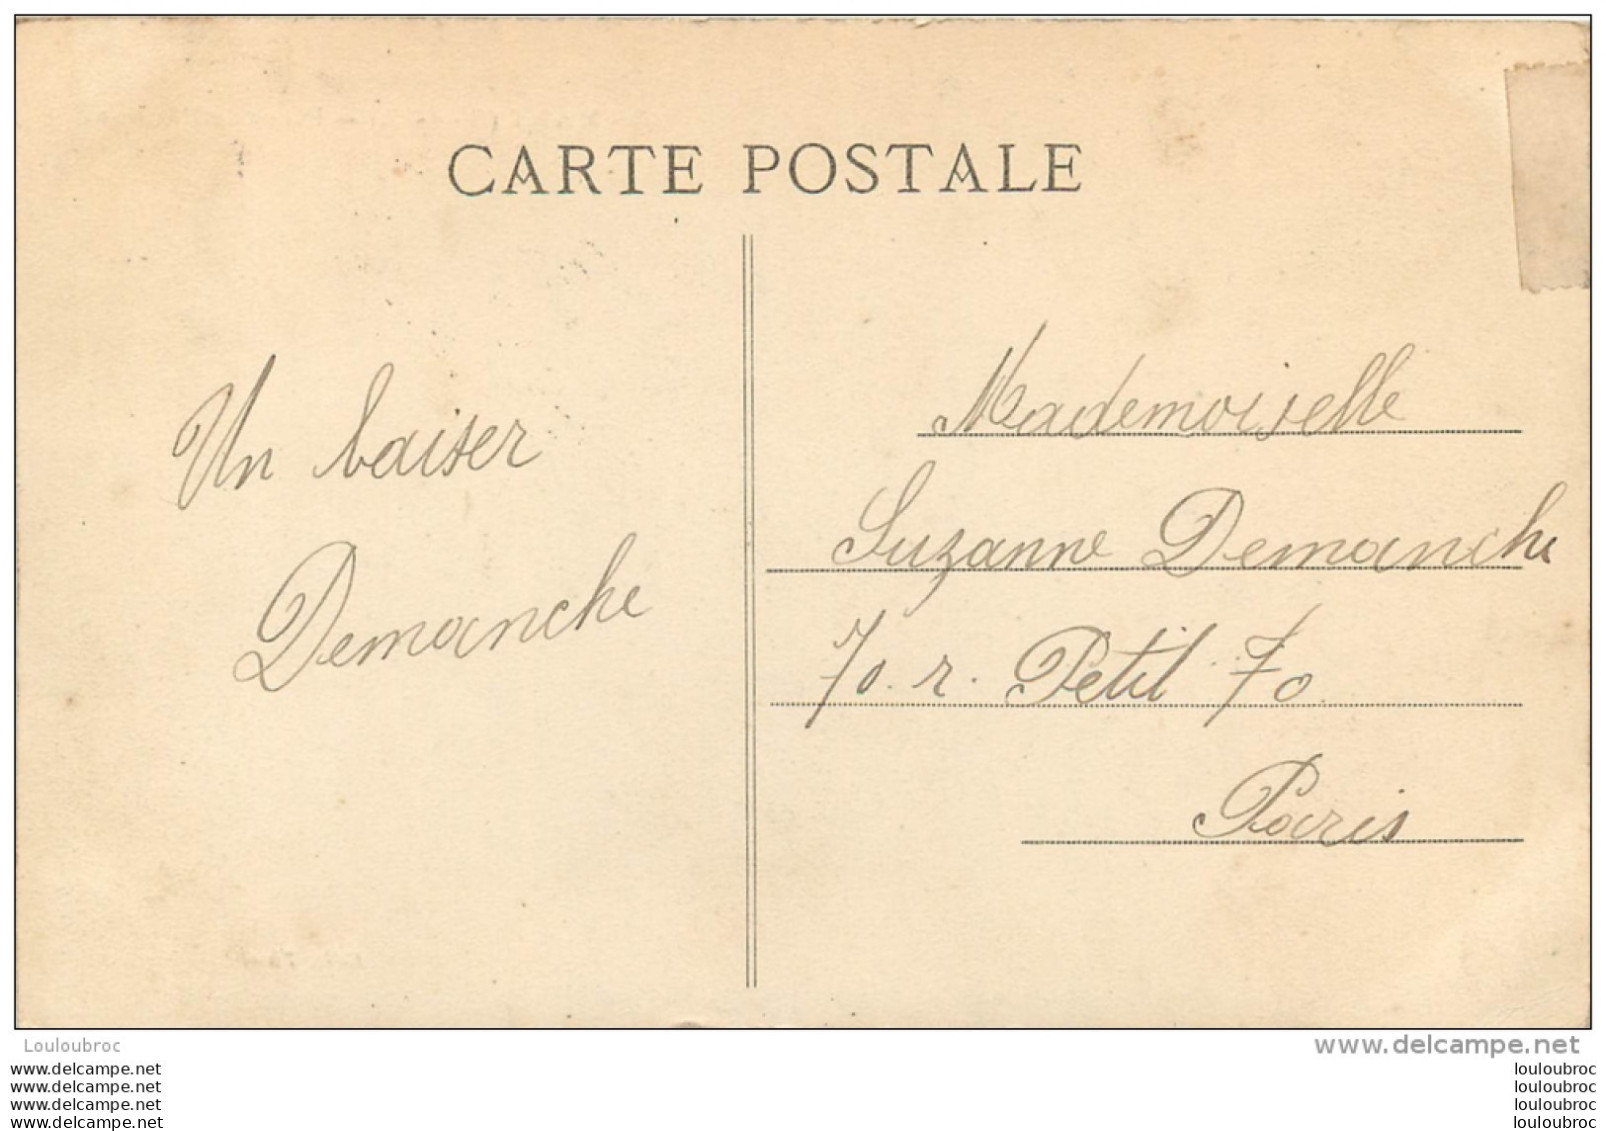 CARTE POSTALE
Un baiser
Demanche
Mademoiselle
Suzanne Demanche
70. r. Petit 70
Paris
Louloubroc
www.delcampe.net
www.delcampe.net
www.delcampe.net
www.delcampe.net
www.delcampe.net
louloubroc
louloubroc
louloubroc
louloubroc